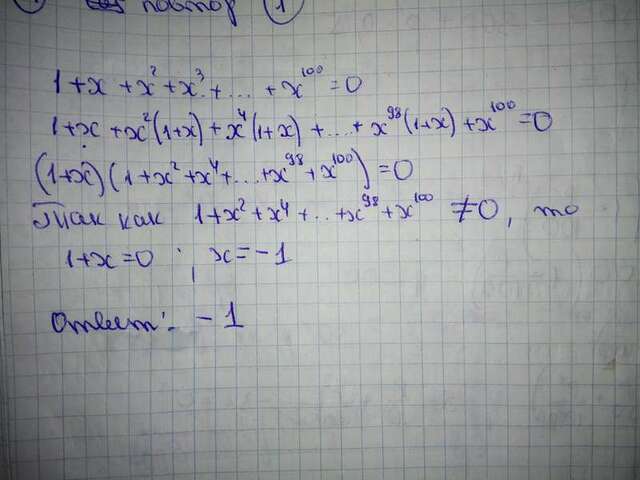 1
1 + x + x² + x³ + ... + x¹⁰⁰ = 0
1 + x + x²(1+x) + x⁴(1+x) + ... + x⁹⁸(1+x) + x¹⁰⁰ = 0
(1+x)(1 + x² + x⁴ + ... + x⁹⁸ + x¹⁰⁰) = 0
Так как 1 + x² + x⁴ + ... + x⁹⁸ + x¹⁰⁰ ≠ 0, то
1+x=0; x=-1
Ответ: -1